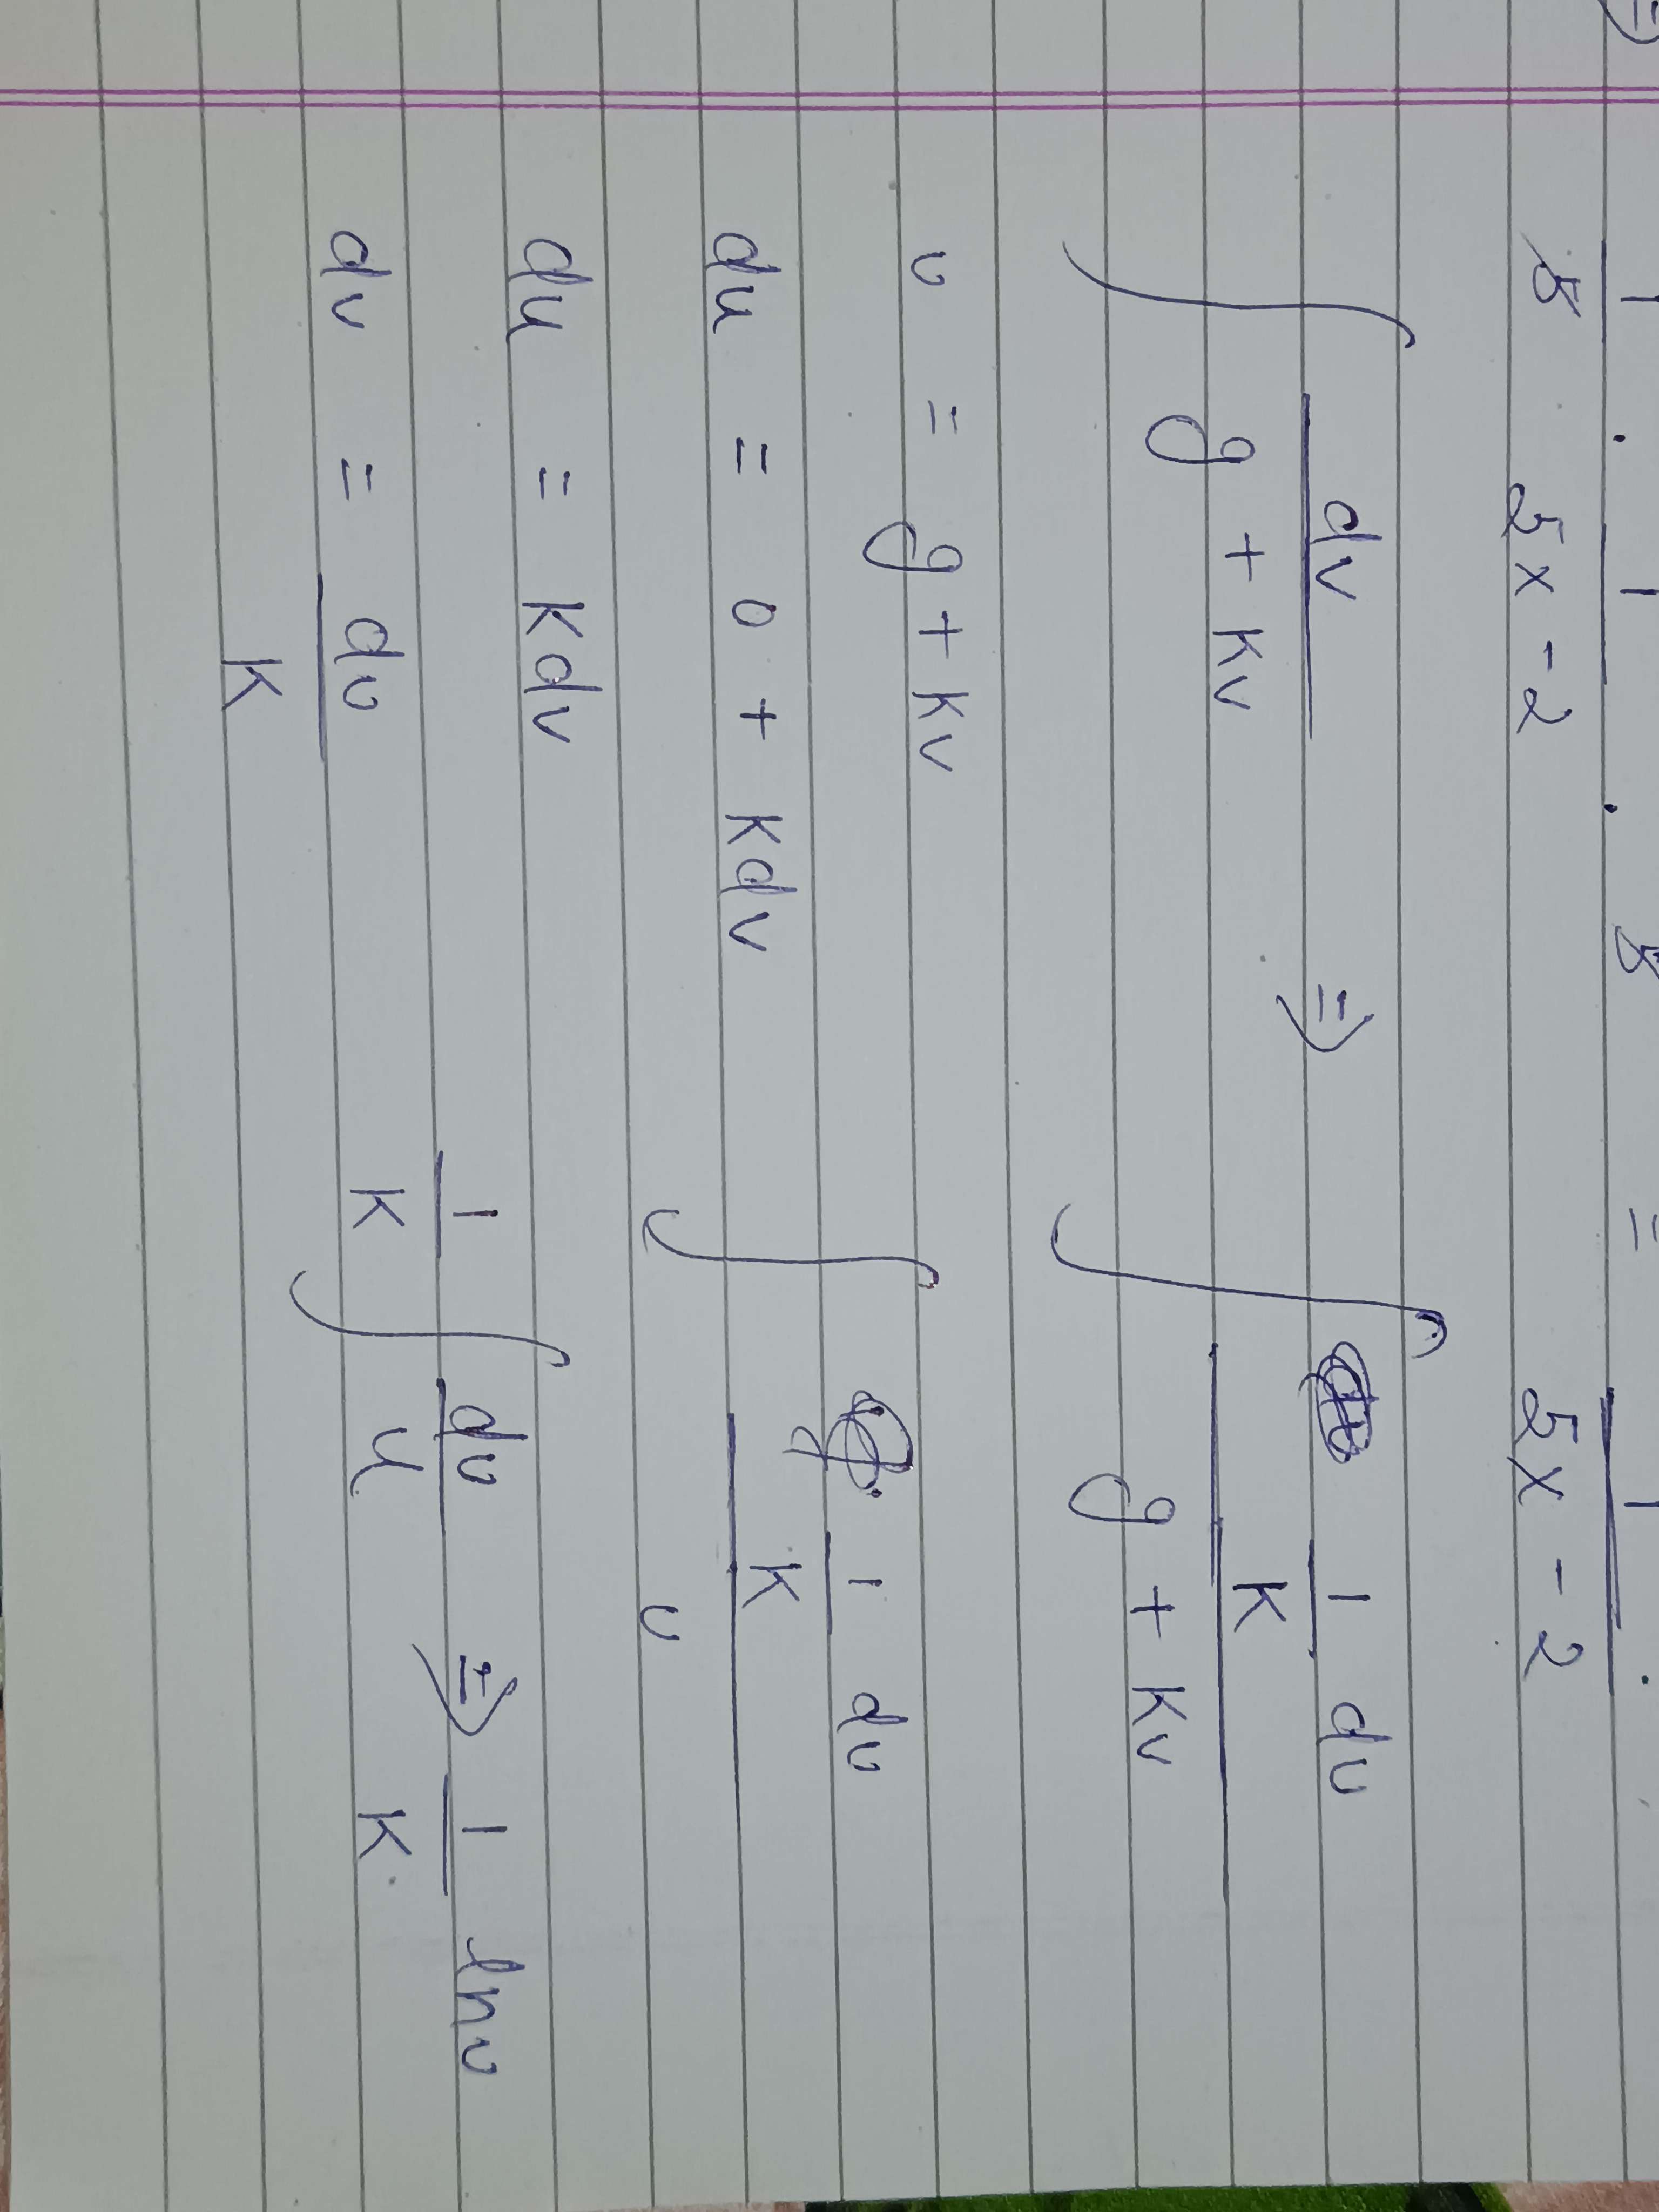 1/5 . 1/(5x - 2) . 5 = 1/(5x - 2) .
∫ dv/(g + kv) ⇒ ∫ (1/k du)/(g + kv)
u = g + kv
∫ (1/k du)/u
du = 0 + kdv
du = kdv
1/k ∫ du/u ⇒ 1/k . ln u
dv = du/k